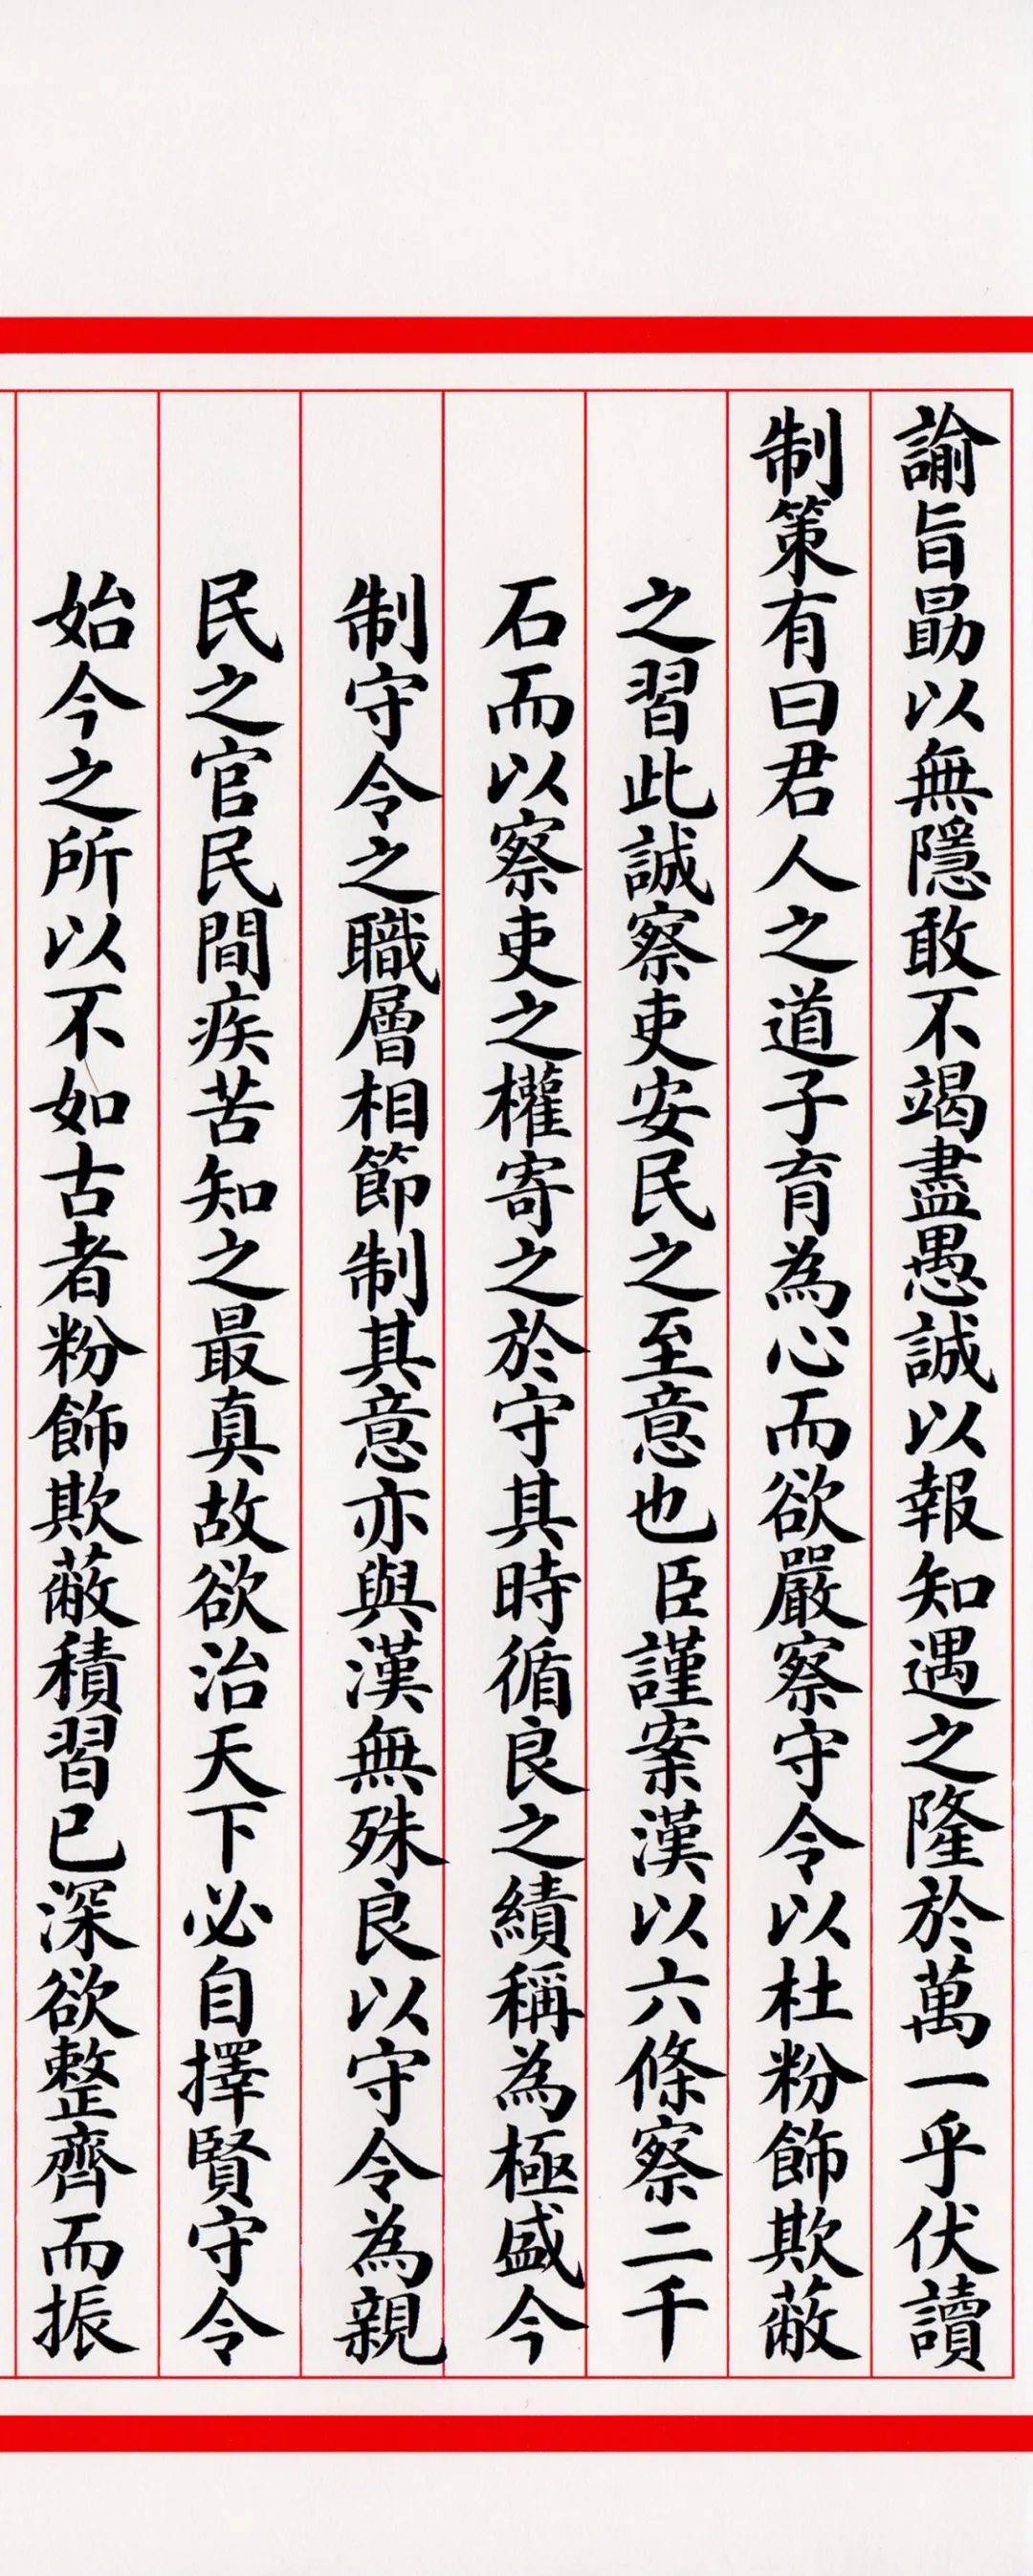 諭旨勗以無隱敢不竭盡愚誠以報知遇之隆於萬一乎伏讀
制策有曰君人之道子育為心而欲嚴察守令以杜粉飾欺蔽
之習此誠察吏安民之至意也臣謹案漢以六條察二千
石而以察吏之權寄之於守其時循良之績稱為極盛今
制守令之職層相節制其意亦與漢無殊良以守令為親
民之官民間疾苦知之最真故欲治天下必自擇賢守令
始今之所以不如古者粉飾欺蔽積習已深欲整齊而振